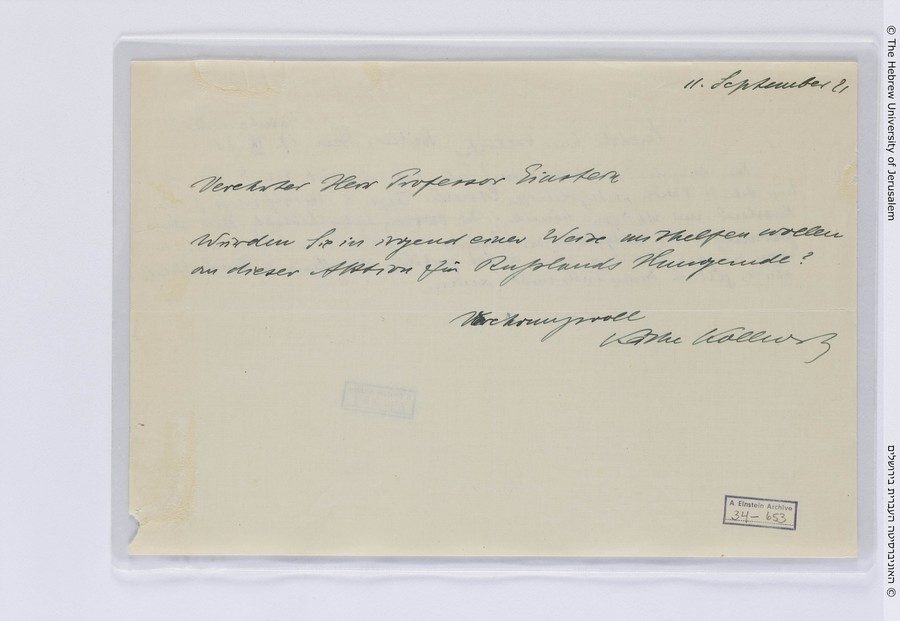 11. September 21
Verehrter Herr Professor Einstein
Würden Sie in irgend einer Weise mithelfen wollen
an dieser Aktion für Rußlands Hungernde?
Verehrungsvoll
Käthe Kollwitz
A. Einstein Archive
34-653
© The Hebrew University of Jerusalem
© האוניברסיטה העברית בירושלים